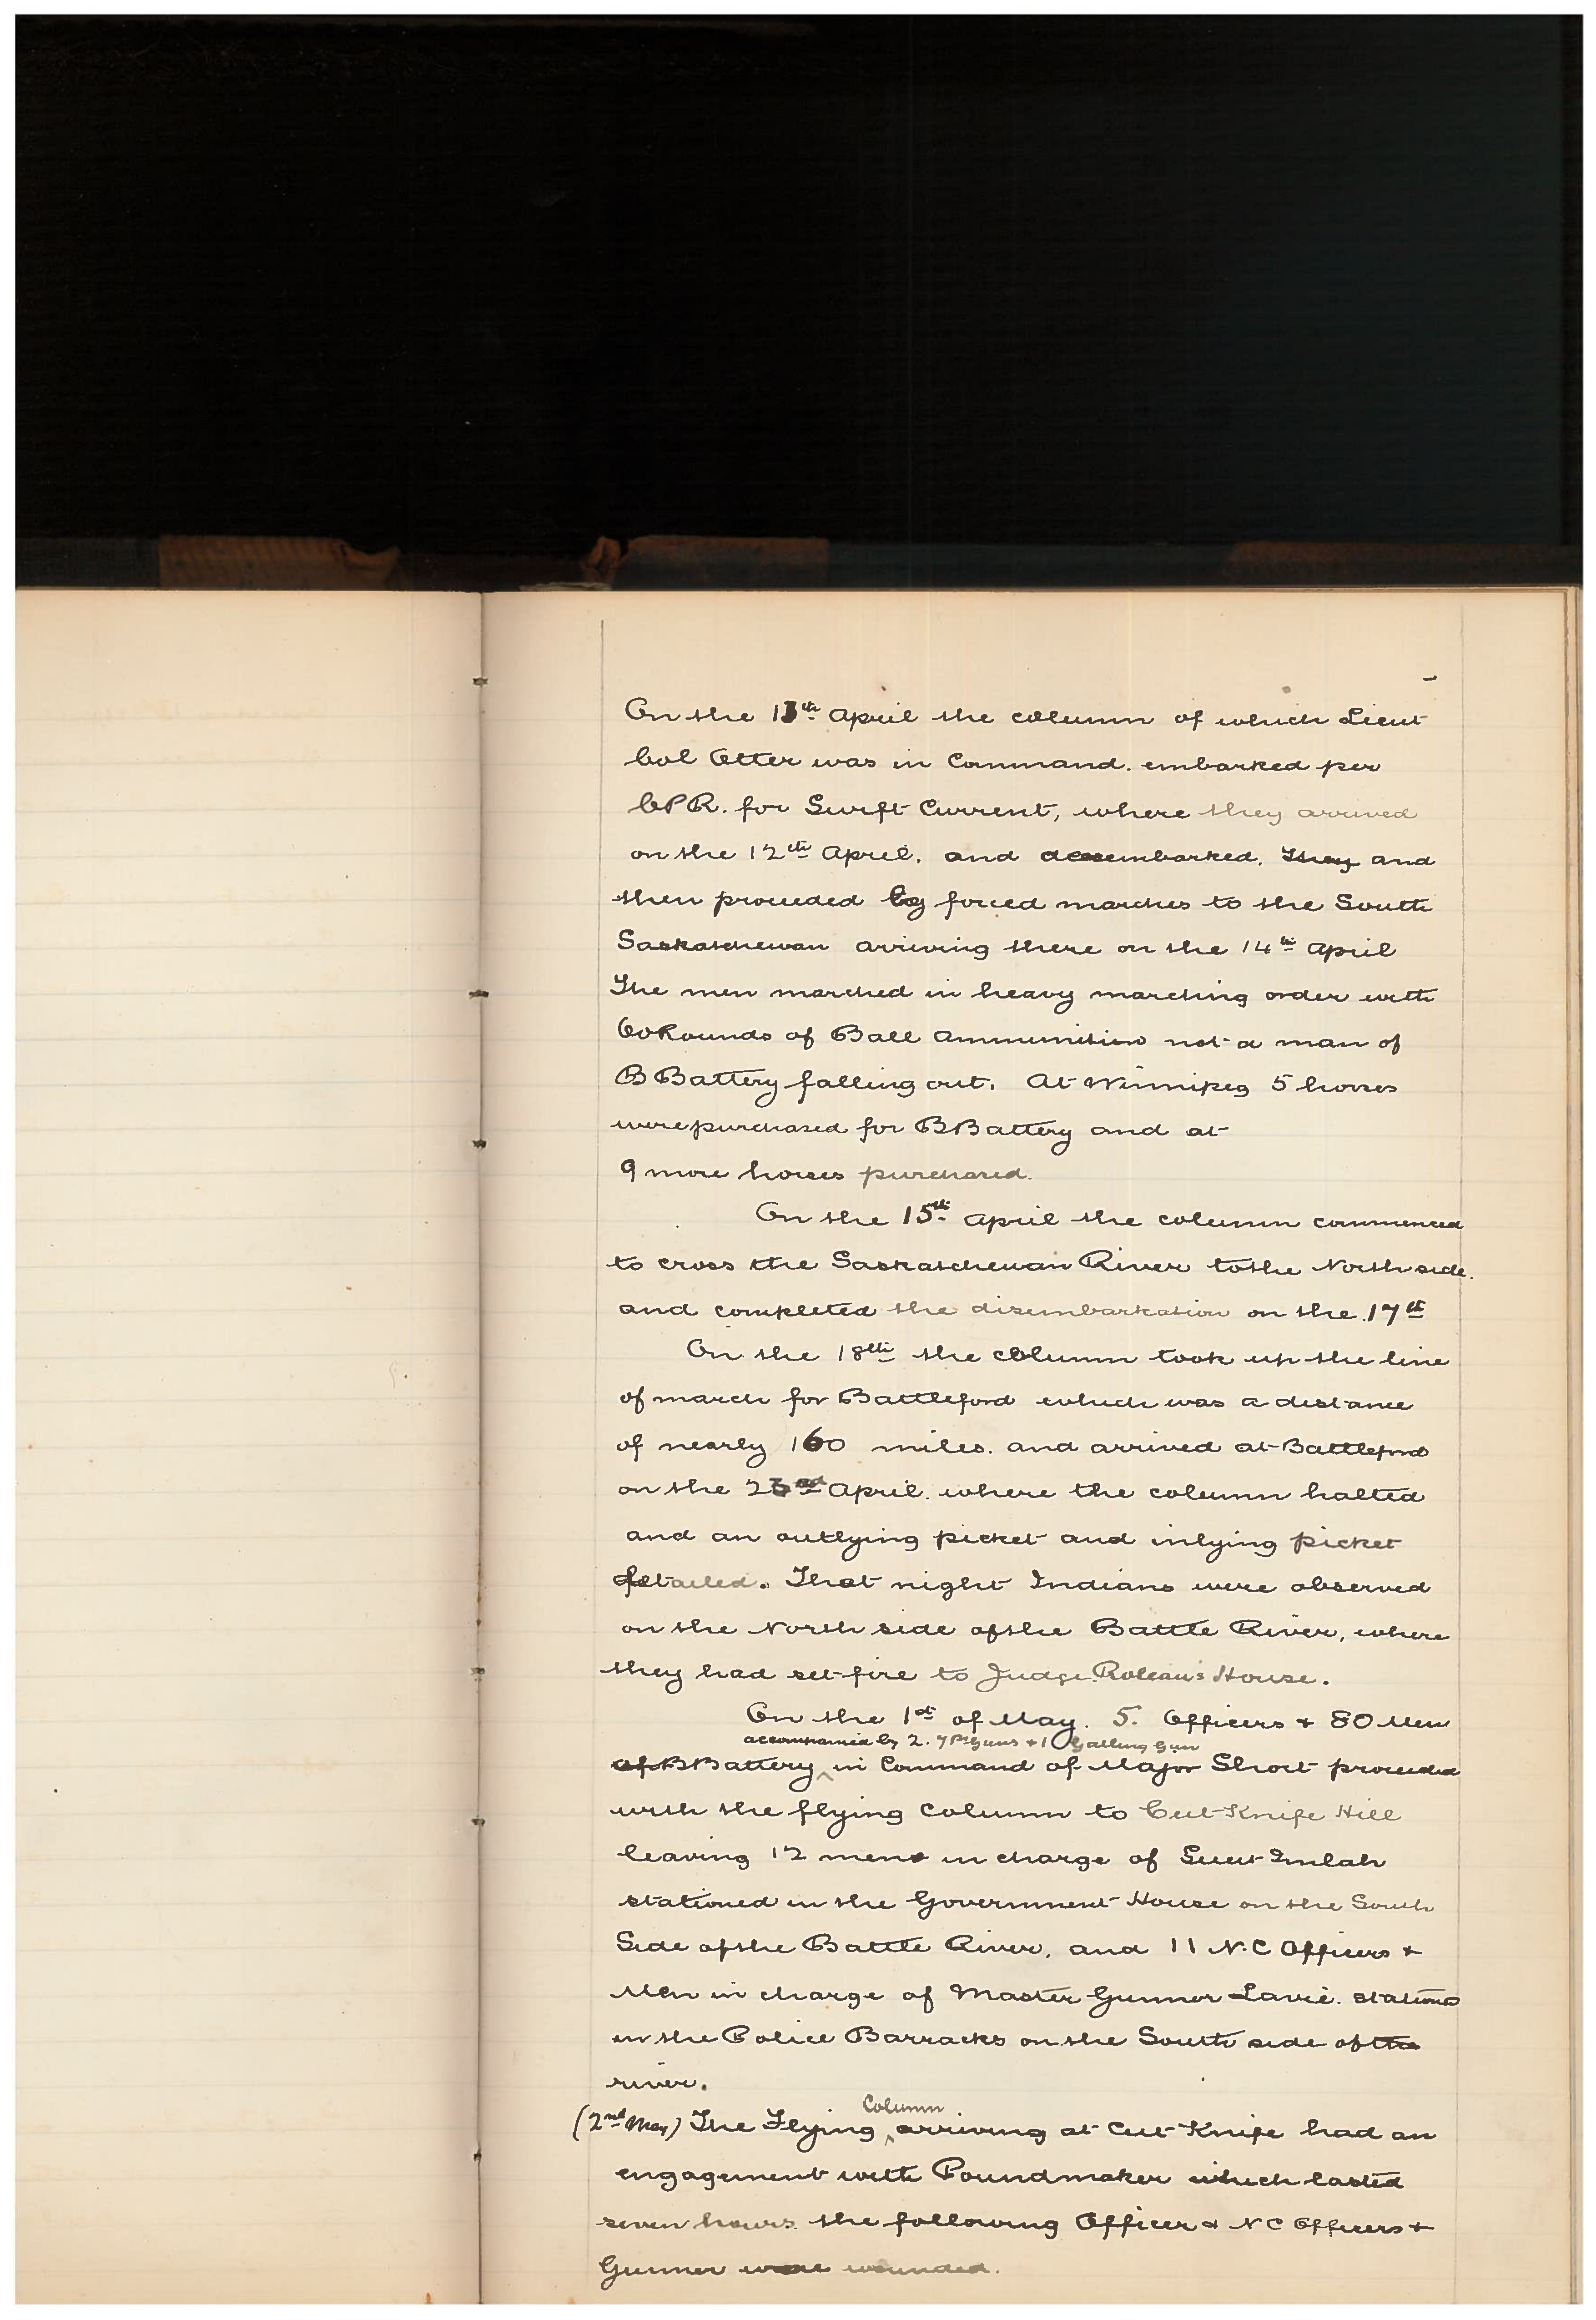 On the 13th April the column of which Lieut
Col Otter was in Command. embarked per
C.P.R. for Swift Current, where they arrived
on the 12th April. and disembarked. They and
then proceeded by forced marches to the South
Saskatchewan arriving there on the 14th April
The men marched in heavy marching order with
60 Rounds of Ball Ammunition not a man of
B Battery falling out. At Winnipeg 5 horses
were purchased for B Battery and at
9 more horses purchased.
On the 15th April the column commenced
to cross the Saskatchewan River to the North side.
and completed the disembarkation on the 17th
On the 18th the column took up the line
of march for Battleford which was a distance
of nearly 160 miles. and arrived at Battleford
on the 23rd April. where the column halted
and an outlying picket and inlying picket
detailed. That night Indians were observed
on the North side of the Battle River, where
they had set fire to Judge Roleau's House.
On the 1st of May. 5. Officers + 80 Men
accompanied by 2. 7 Pr Guns + 1 Gatling Gun
of B Battery in Command of Major Short proceeded
with the flying Column to Cut Knife Hill
leaving 12 men in charge of Lieut Imlah
stationed in the Government House on the South
Side of the Battle River, and 11 N.C Officers +
Men in charge of Master Gunner Lavie. stationed
in the Police Barracks on the South side of the
river.
Column
(2nd May) The Flying arriving at Cut Knife had an
engagement with Poundmaker which lasted
seven hours. the following Officer & N C Officers +
Gunner were wounded.